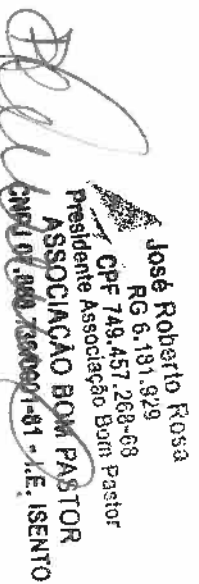 José Roberto Rosa
RG 6.181.929
CPF 749.457.268-68
Presidente Associação Bom Pastor
ASSOCIAÇÃO BOM PASTOR
I.E. ISENTO